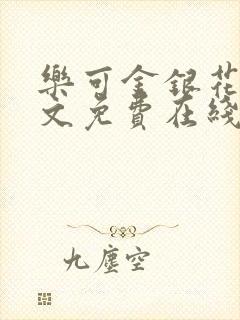 樂可金銀花
文免費在綫
九塵空